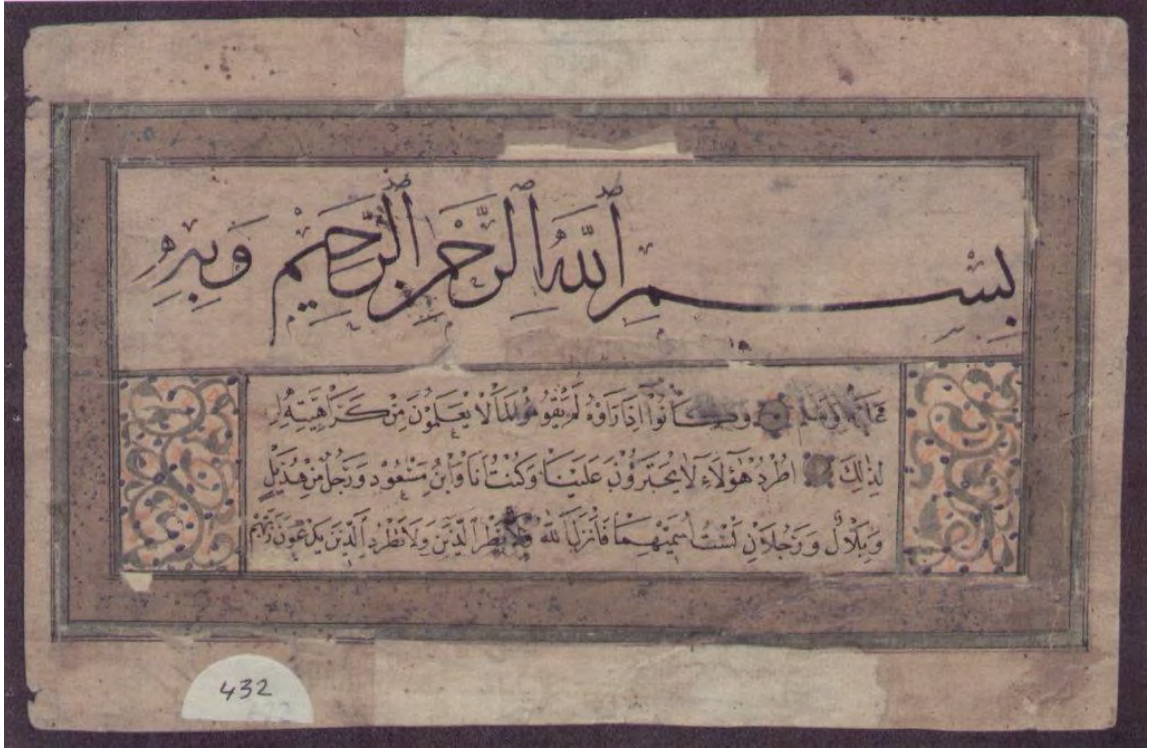 بِسْمِ ٱللَّهِ ٱلرَّحْمٰنِ ٱلرَّحِيمِ وَبِهِ
وسلم وكانوا اذا راوه لم يقوموا لما لا يعلمون من كراهيته
لذلك اطرد هؤلاء لا يجترؤن علينا وكنت انا وابن مسعود ورجل من هذيل
وبلال ورجلان لست اسميهما فانزل الله ولا تطرد الذين يدعون ربهم
432